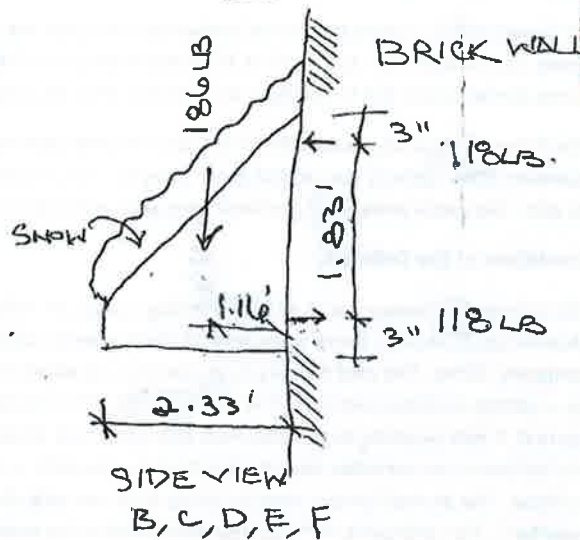 BRICK WALL
186 LB
3"
118LB.
SNOW
1.83'
1.16'
3"
118 LB
2.33'
SIDE VIEW
B, C, D, E, F